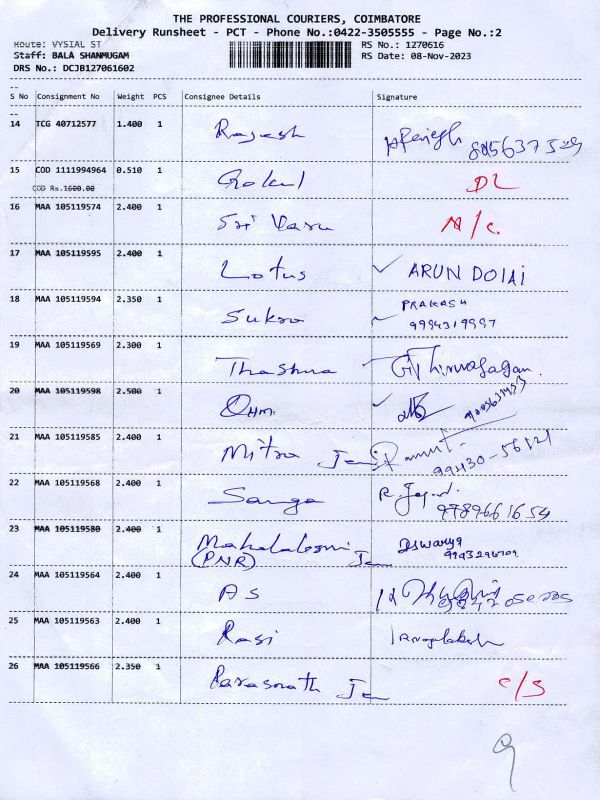 THE PROFESSIONAL COURIERS, COIMBATORE
Delivery Runsheet - PCT - Phone No.:0422-3505555 - Page No.:2
Route: VYSIAL ST
Staff: BALA SHANMUGAM
DRS No.: DCJB127061602
RS No.: 1270616
RS Date: 08-Nov-2023
S No Consignment No Weight PCS Consignee Details Signature
14 TCG 40712577 1.400 1 Rajesh
15 COD 1111994964 0.510 1 Gokul DL
COD Rs.1600.00
16 MAA 105119574 2.400 1 Sri Vasu N/C
17 MAA 105119595 2.400 1 Lotus ARUN DOLAI
18 MAA 105119594 2.350 1 Sukra PRAKASH
9994319997
19 MAA 105119569 2.300 1
20 MAA 105119598 2.500 1 OHM
21 MAA 105119585 2.400 1 Mitra 99430-56121
22 MAA 105119568 2.400 1 Sanga
9789661654
23 MAA 105119580 2.400 1 Iswarya
(PNR)
24 MAA 105119564 2.400 1 AS
25 MAA 105119563 2.400 1 Rasi
26 MAA 105119566 2.350 1 Parasnath C/S